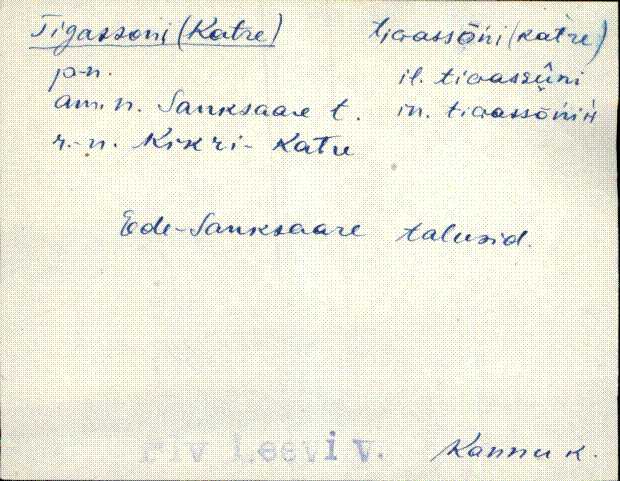 Tigassoni (Katre) tiɢassōni (katre)
p.-n. il. tiɢassüni
am. n. Sanksaare t. in. tiɢassōnih
r.-n. Kikri-Katre
Ede-Sanksaare talusid.
Plv Leevi v. Kannu k.